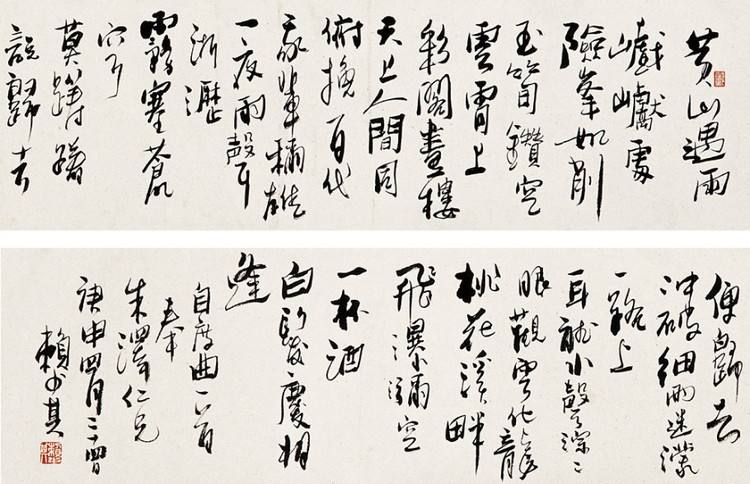 黄山遇雨
巇巘處
險峯如削
玉筍鑽空
雲霄上
彩閣畫樓
天上人間同
俯挽百代
我輩稱雄
一夜雨聲
淅瀝
霧塞蒼
穹
莫躊躇
說歸去
便歸去
沖破細雨迷濛
一路上
耳聽水聲淙〻
眼觀雲化龍
桃花溪畔
飛瀑瀉空
一杯酒
白髮慶相
逢
自度曲一首
奉
朱澤仁兄
庚申四月二十四日
賴少其